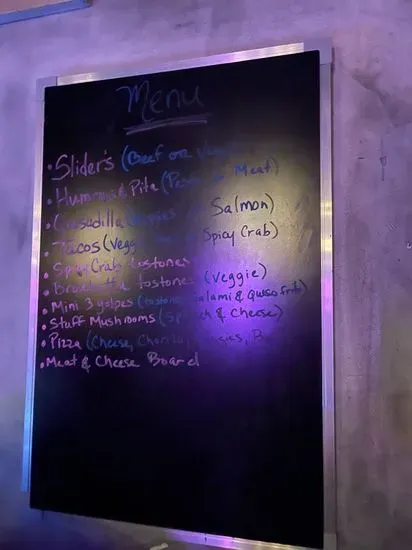 Menu
• Slider's (Beef or Veggie
• Hummus & Pita (Pesto or Meat)
• Quesadilla (Veggies Salmon)
• Tacos (Vegg Spicy Crab)
• Spicy Crab tostones
• Bruschetta tostones (Veggie)
• Mini 3 golpes (tostone Salami & Queso frito)
• Stuff Mushrooms ( & Cheese)
• Pizza (Cheese,
• Meat & Cheese Board